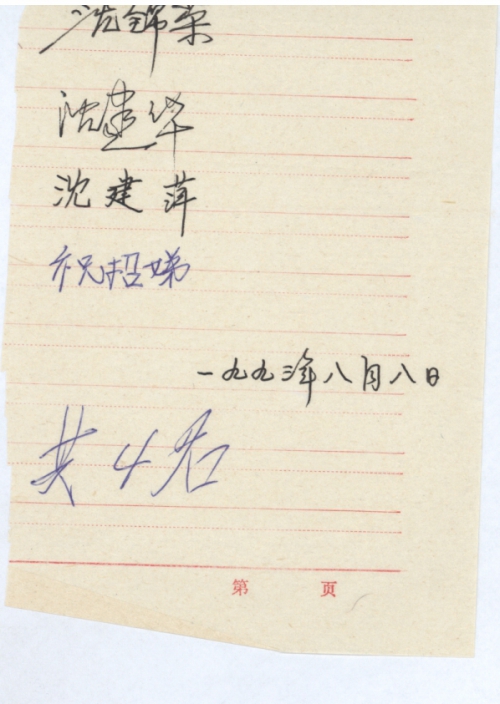 沈锦荣
沈建华
沈建萍
祝招娣
一九九三年八月八日
共4名
第 页